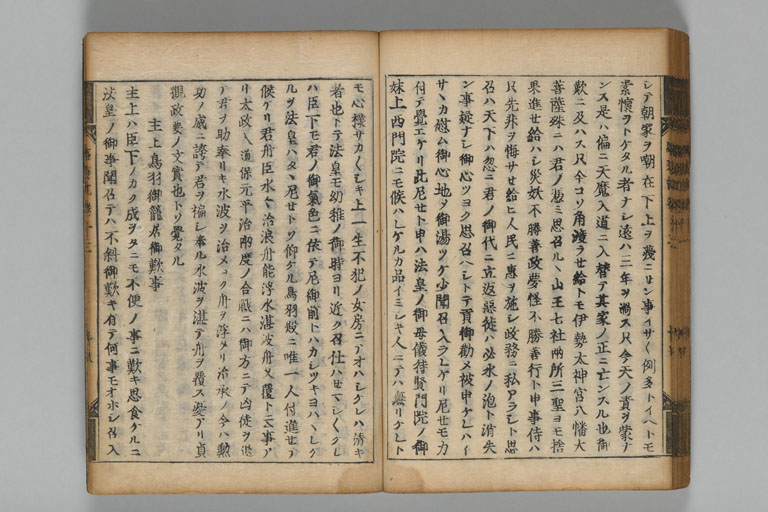 シテ朝家ヲ嘲在下上ヲ蔑ニセシ事イサヽ例多トイヘトモ
素懐ヲトケタル者ナシ遠ハ三年ヲ満ス只今天ノ責ヲ蒙ナ
ンス是ハ偏ニ天魔入道ニ入替テ其家ノ正ニ亡ンスル也御
歎ニ及ハス只今コソ角渡ラせ給トモ伊勢太神宮八幡大
菩薩殊ニハ君ノ憑ミ思召ルヽ山王七社両所三聖ヨモ捨
果進せ給ハシ災妖不勝善政夢怪不勝善行ト申事侍ハ
只先非ヲ悔サせ給ヒ人民ニ惠ヲ施シ政務ニ私アラシト思
召ハ天下ハ忽ニ君ノ御代ニ立返惡徒ハ必水ノ泡ト消失
ン事疑ナシ御心ツヨク思召ヘシトテ頁御勸メ被申ケレハイ
サヽカ慰ム御心地ヲ御湯ツケ少聞召入ラレケリ尼せモカ
付テ覺エケリ此尼せト申ハ法皇ノ御母儀待賢門院ノ御
妹上西門院ニモ候ハレケルカ品イミシキ人ニテハ無リケレト
モ心樣サカ〱シキ上一生不犯ノ女房ニテオハシケレハ清キ
者也トテ法皇モ幼稚ノ御時ヨリ近ク召仕ハせマシ〱クレ
ハ臣下モ君ノ御氣色ニ依テ尼御前トハカシツキヨハヽレシ
ルヲ法皇ハタヽ尼せトソ仰ケル鳥羽殿ニ唯一人付進せテ
候ケリ君舟臣水水治浪舟能浮水湛波舟又覆ト云事アリ
リ太政入道保元平治兩度ノ合戰ニハ御方ニテ凶徒ヲ退
テ君ヲ助奉リキ水波ヲ治メ〱舟ヲ浮メリ治承ノ今ハ勲
功ノ威ニ誇テ君ヲ惱シ奉ル水波ヲ湛テ舟ヲ覆ス憂アリ貞
觀政要ノ文實也トソ覺タル
主上鳥羽御籠居御歎事
主上ハ臣下ノカク成ヲタニモ不便ノ事ニ歎キ思食ケルニ
法皇ノ御事聞召テハ不斜御歎キ有テ何事モオホシ召入